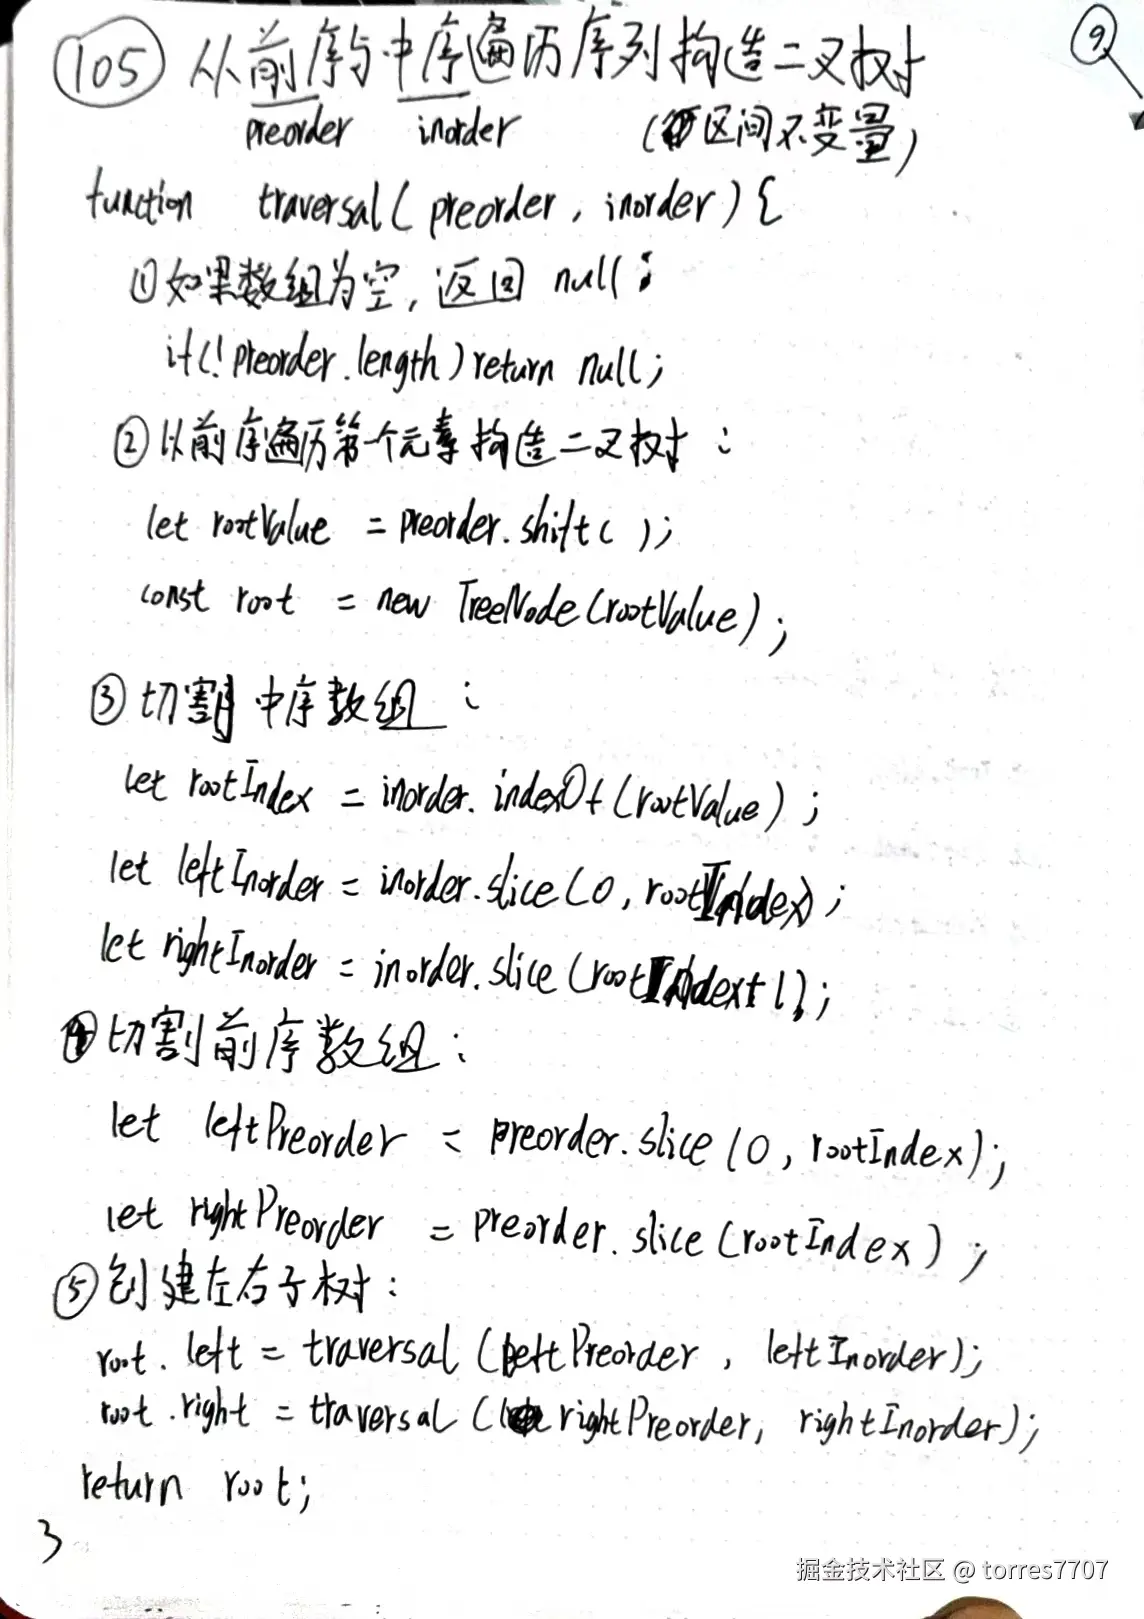 105 从前序与中序遍历序列构造二叉树
9
preorder inorder (区间不变量)
function traversal(preorder, inorder){
①如果数组为空,返回 null:
if(!preorder.length)return null;
②以前序遍历第一个元素构造二叉树:
let rootValue = preorder.shift();
const root = new TreeNode(rootValue);
③切割中序数组:
let rootIndex = inorder.indexOf(rootValue);
let leftInorder = inorder.slice(0, rootIndex);
let rightInorder = inorder.slice(rootIndex+1);
④切割前序数组:
let leftPreorder = preorder.slice(0, rootIndex);
let rightPreorder = preorder.slice(rootIndex);
⑤创建左右子树:
root.left = traversal(leftPreorder, leftInorder);
root.right = traversal(rightPreorder, rightInorder);
return root;
}
掘金技术社区 @ torres7707